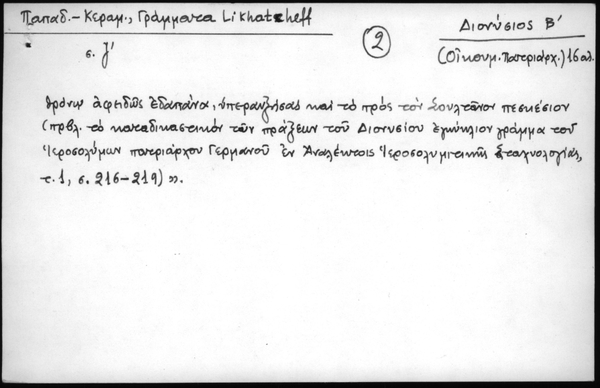 Παπαδ.-Κεραμ., Γράμματα Likhatcheff
σ. ζ'
2
Διονύσιος Β'
(Οἰκουμ. Πατριάρχ.) 16 αἰ.
θρόνῳ ἀφειδῶς ἐδαπάνα, ὑπεραυξήσας καὶ τὸ πρὸς τὸν σουλτᾶνον πεσκέσιον
(πρβλ. τὸ καταδικαστικὸν τῶν πράξεων τοῦ Διονυσίου ἐγκύκλιον γράμμα τοῦ
Ἱεροσολύμων πατριάρχου Γερμανοῦ ἐν Ἀναλέκτοις Ἱεροσολυμιτικῆς Σταχυολογίας,
τ. 1, σ. 216-219)».